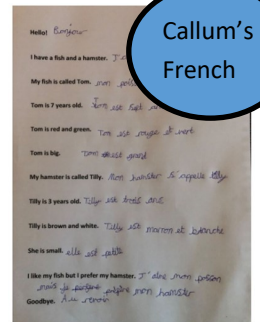 Callum's
French
Hello! Bonjour
I have a fish and a hamster. J'a
My fish is called Tom. mon pois
Tom is 7 years old. Tom est sept an
Tom is red and green. Tom est rouge et vert
Tom is big. Tom est grand
My hamster is called Tilly. Mon hamster s'appelle tilly
Tilly is 3 years old. Tilly est trois ans
Tilly is brown and white. Tilly est marron et blanche
She is small. elle est petite
I like my fish but I prefer my hamster. J'aime mon poisson
mais je préfère mon hamster
Goodbye. Au revoir